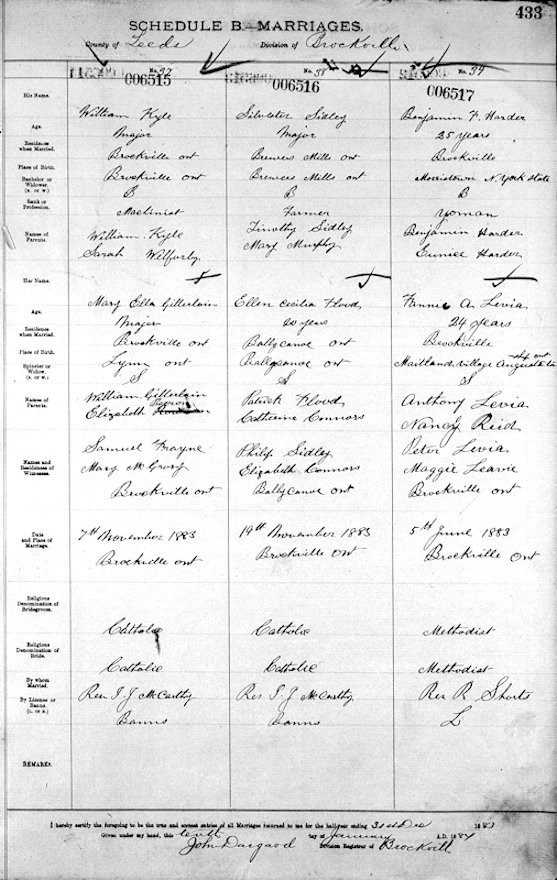 433
SCHEDULE B—MARRIAGES.
County of Leeds Division of Brockville
No. 37 No. 38 No. 39
006515 006516 006517
His Name.
William Kyle Silvester Sidley Benjamin F. Harder
Age.
Major Major 25 years
Residence when Married.
Brockville ont Brewers Mills ont Brockville
Place of Birth.
Brockville ont Brewers Mills ont Morristown N. York State
Bachelor or Widower. (B. or W.)
B B B
Rank or Profession.
Machinist Farmer Yoman
Names of Parents.
William Kyle Timothy Sidley Benjamin Harder
Sarah Mary Murphy Eunice Harder
Her Name.
Mary Ella Ellen Cecilia Flood Fannie A. Levia
Age.
Major 20 years 24 years
Residence when Married.
Brockville ont Ballycanoe ont Brockville
Place of Birth.
Lynn ont Ballycanoe ont Maitland Village Augusta
Spinster or Widow. (S. or W.)
S S S
Names of Parents.
William Patrick Flood Anthony Levia
Elizabeth Catherine Connors Nancy Reid
Names and Residences of Witnesses.
Samuel Philip Sidley Peter Levia
Mary Elizabeth Connors Maggie
Brockville ont Ballycanoe ont Brockville ont
Date and Place of Marriage.
7th November 1883 19th November 1883 5th June 1883
Brockville ont Brockville Ont Brockville Ont
Religious Denomination of Bridegroom.
Catholic Catholic Methodist
Religious Denomination of Bride.
Catholic Catholic Methodist
By whom Married.
Rev J. J McCarthy Rev J. J McCarthy Rev R. Shorts
By License or Banns. (L. or B.)
Banns Banns L
REMARKS.
I hereby certify the foregoing to be the true and correct entries of all Marriages returned to me for the half-year ending 31st Dec 1883
Given under my hand, this tenth day of January A.D. 1884
John Division Registrar of Brockvill